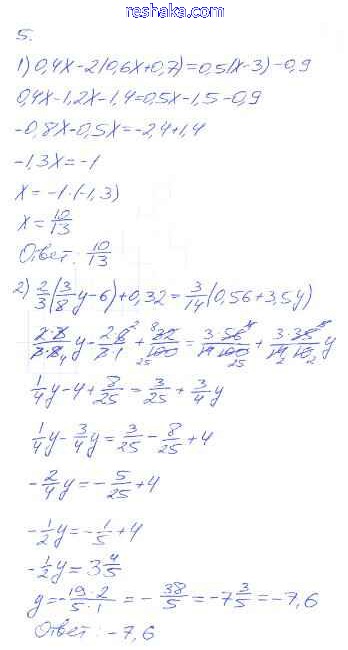 reshaka.com
5.
1) 0,4x-2(0,6x+0,7)=0,5(x-3)-0,9
0,4x-1,2x-1,4=0,5x-1,5-0,9
-0,8x-0,5x=-2,4+1,4
-1,3x=-1
x=-1:(-1,3)
x=10/13
Ответ: 10/13
2) 2/3(3/8y-6)+0,32=3/14(0,56+3,5y)
2·3/3·8 4 y-2·6 2/3·1+8 32/100 25=3·56 4/14·100 25+3·35 5/14 2·10 2 y
1/4y-4+8/25=3/25+3/4y
1/4y-3/4y=3/25-8/25+4
-2/4y=-5/25+4
-1/2y=-1/5+4
-1/2y=3 4/5
y=-19·2/5·1=-38/5=-7 3/5=-7,6
Ответ: -7,6